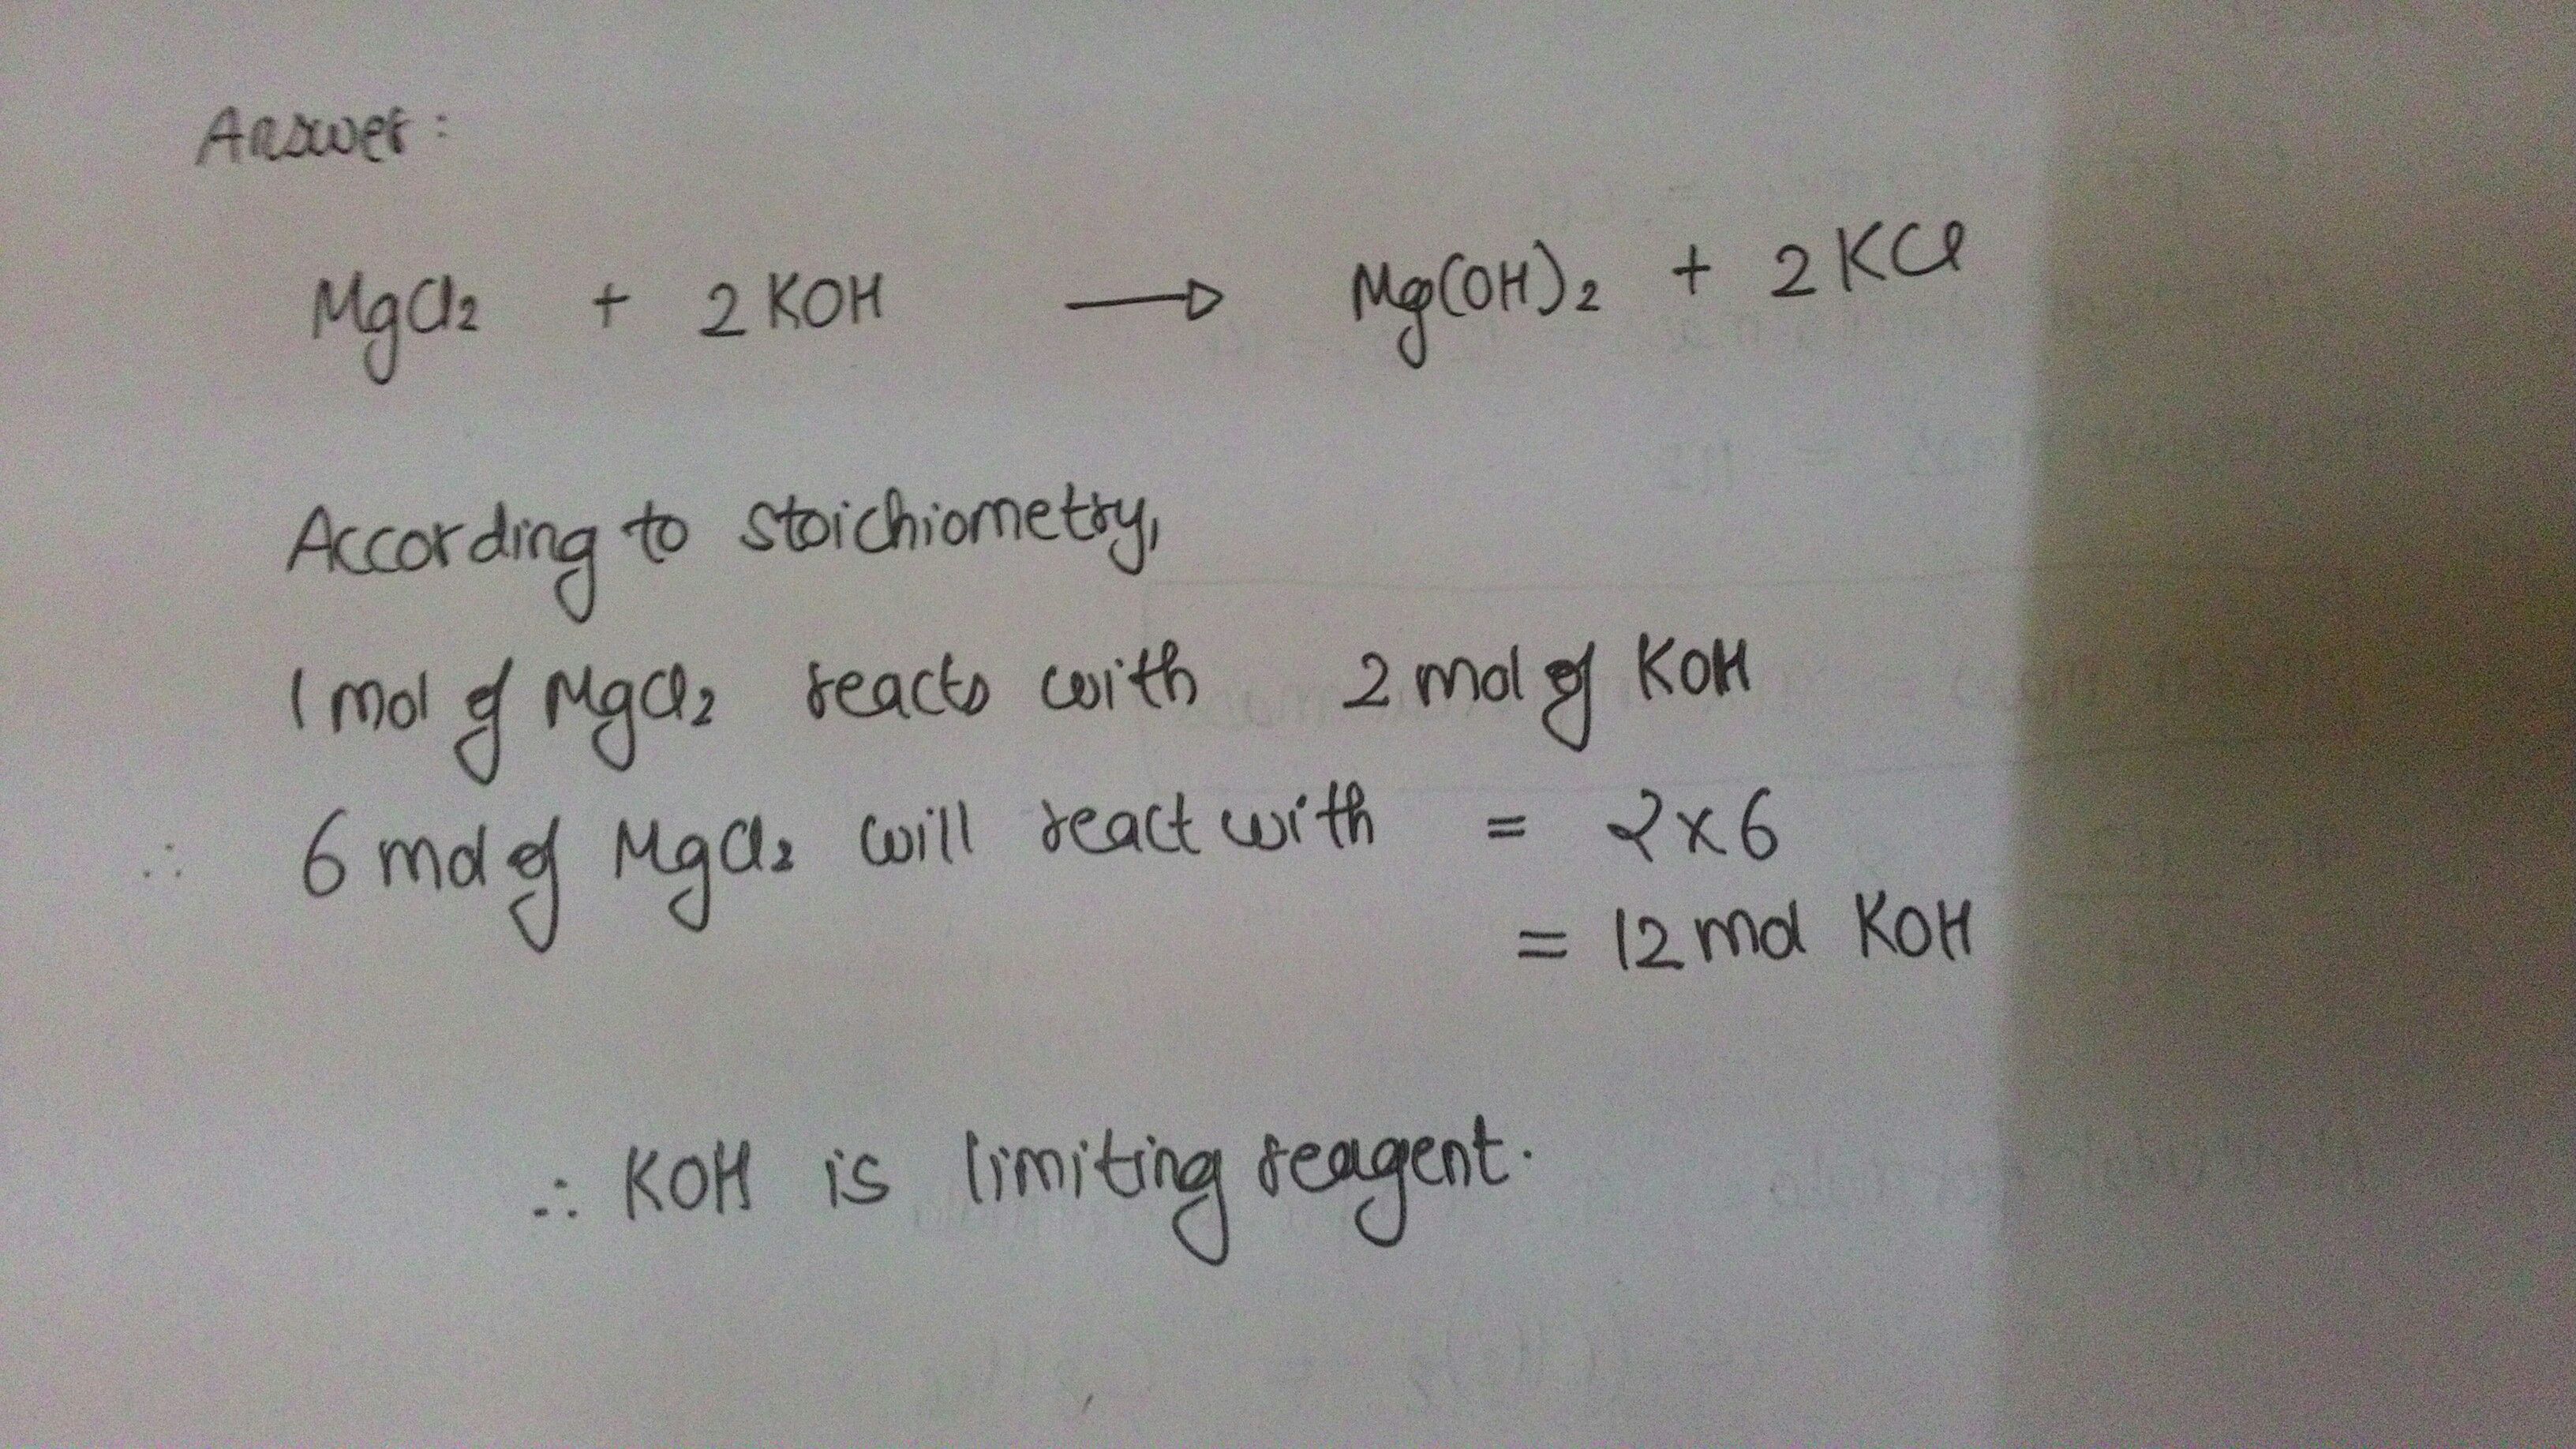 Answer:
MgCl2 + 2 KOH → Mg(OH)2 + 2 KCl
According to stoichiometry,
1 mol of MgCl2 reacts with 2 mol of KOH
∴ 6 mol of MgCl2 will react with = 2 x 6
= 12 mol KOH
∴ KOH is limiting reagent.